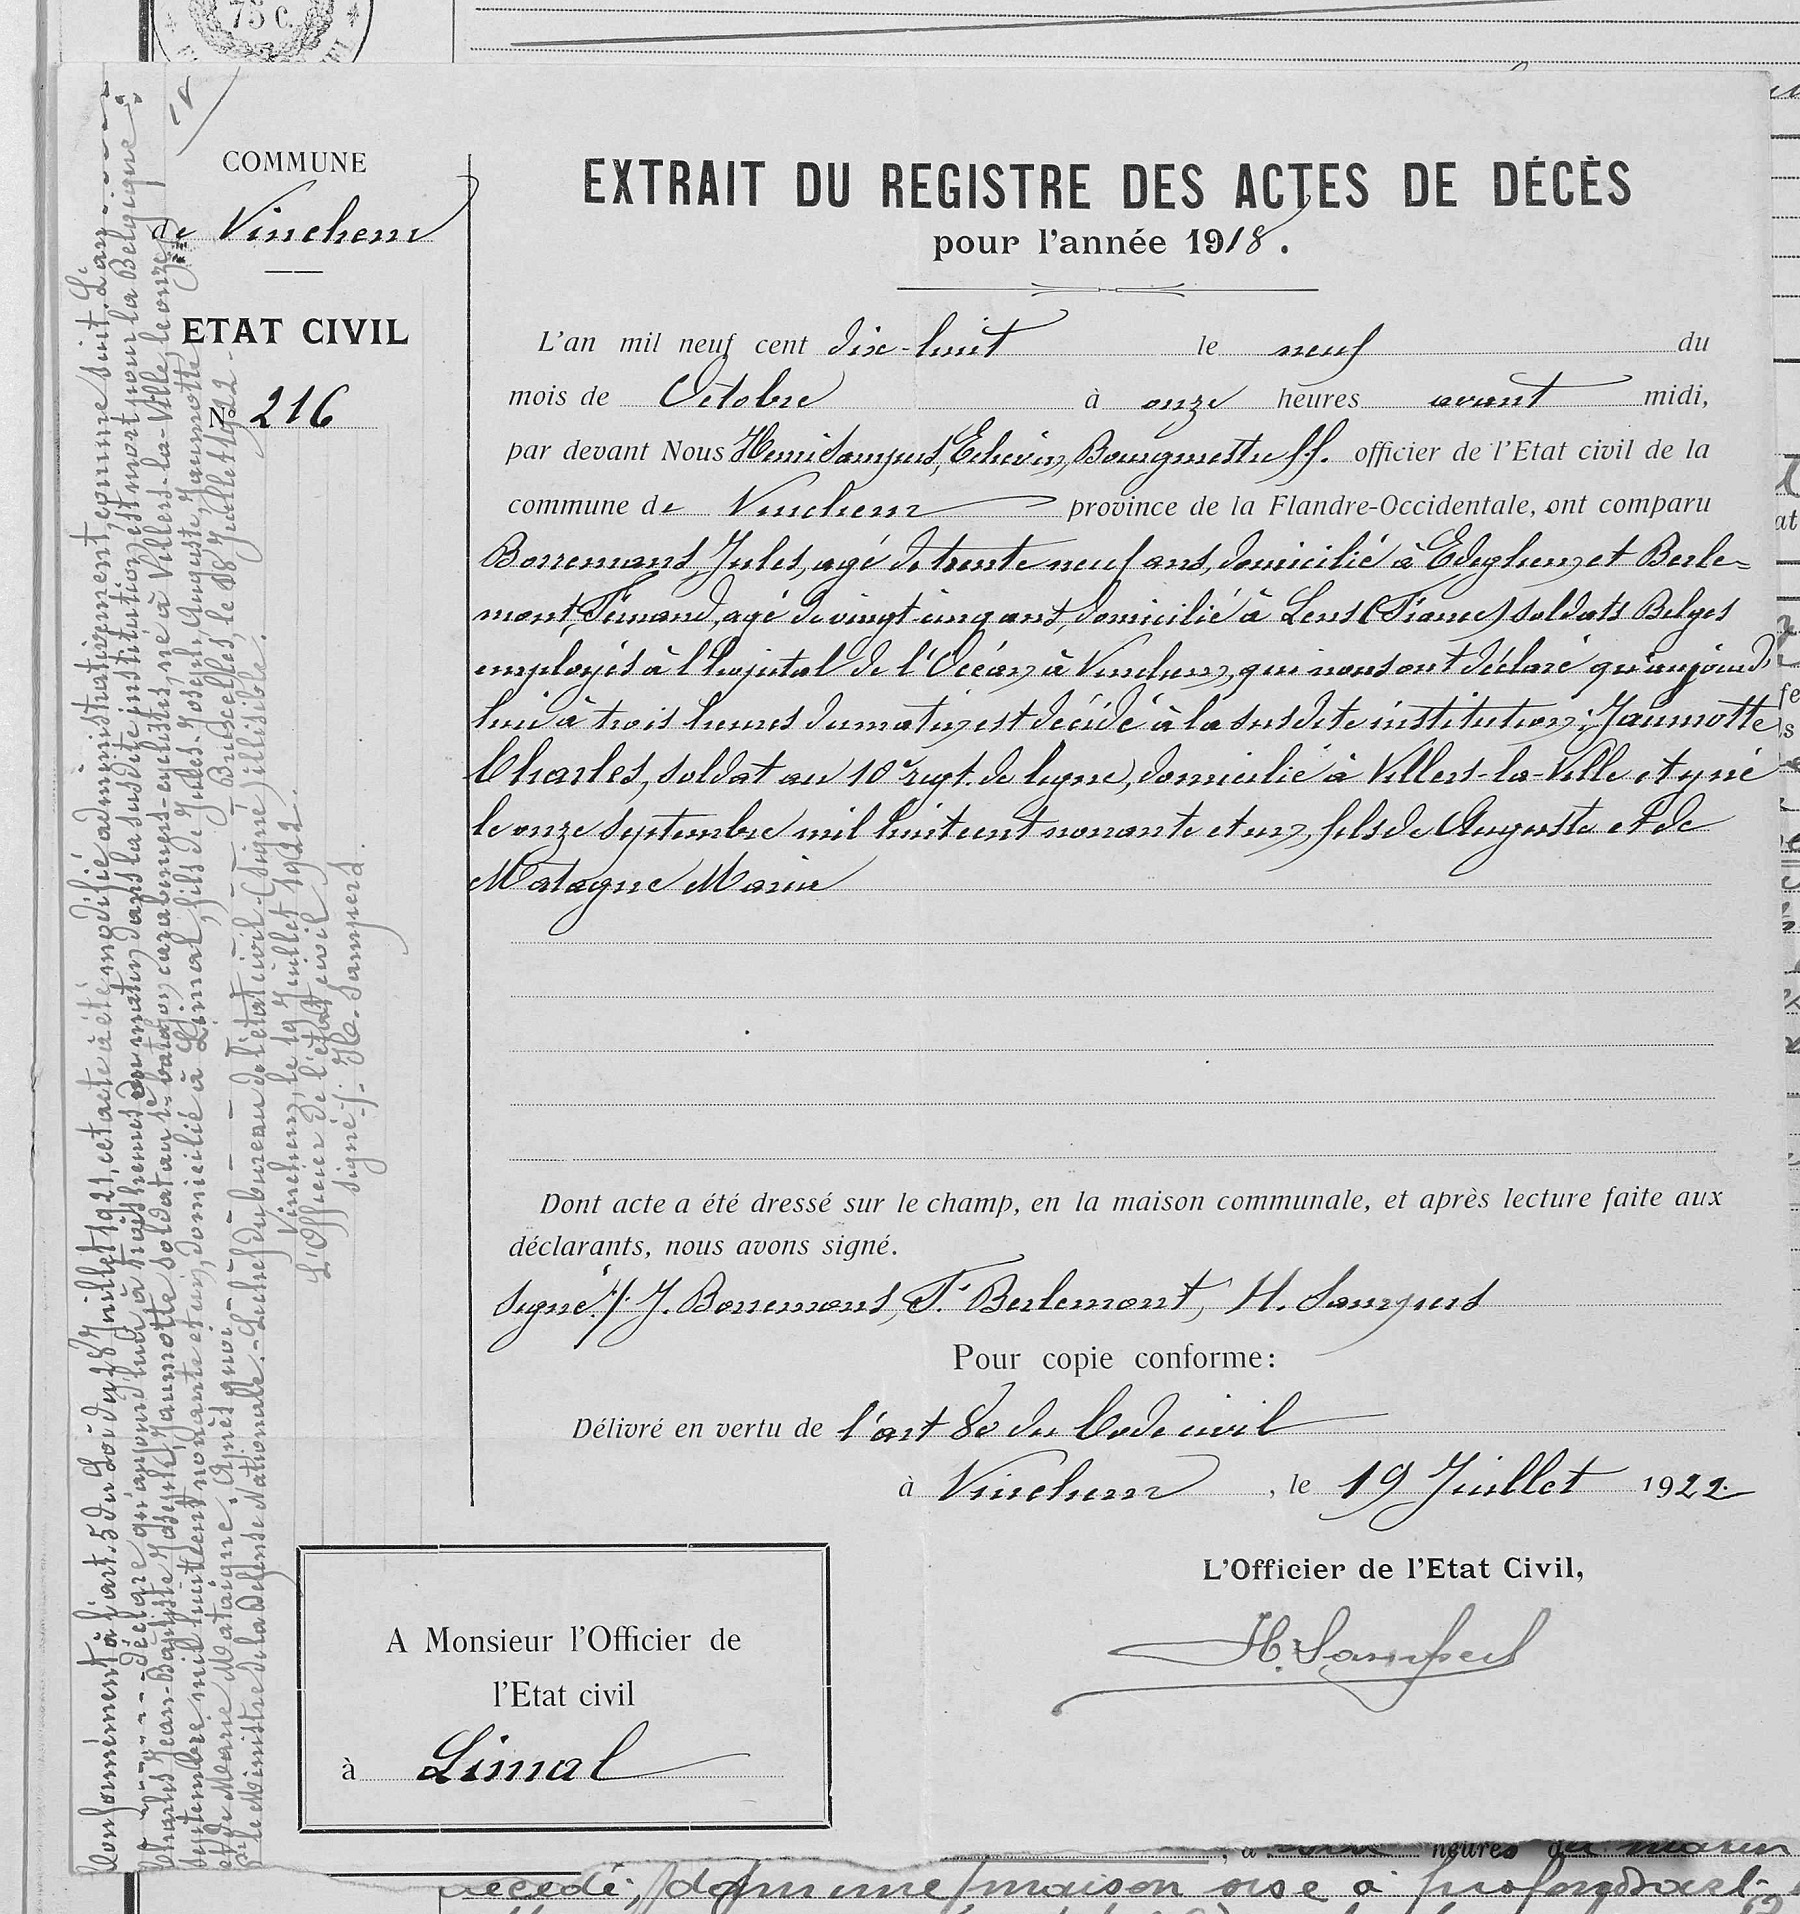 75 c.
COMMUNE
de Vinchem
ETAT CIVIL
N° 216
EXTRAIT DU REGISTRE DES ACTES DE DÉCÈS
pour l'année 1918.
L'an mil neuf cent dix-huit le neuf du
mois de Octobre à onze heures avant midi,
par devant Nous Henri Sampers, Echevin, Bourgmestre ff. officier de l'Etat civil de la
commune de Vinchem province de la Flandre-Occidentale, ont comparu
Borremans Jules, agé de trente neuf ans, domicilié à Edeghem, et Berle=
mont, Fernand, agé de vingt cinq ans, domicilié à Lens (France) soldats Belges
employés à l'hopital de l'Océan, à Vinchem, qui nous ont déclaré qu'aujourd'
hui à trois heures du matin, est décédé à la susdite institution: Jaumotte
Charles, soldat au 10e regt. de ligne, domicilié à Villers-la-Ville et y né
le onze septembre mil huit cent nonante et un, fils de Auguste et de
Matagne Marie
Dont acte a été dressé sur le champ, en la maison communale, et après lecture faite aux
déclarants, nous avons signé.
Signé:/ J. Borremans, F. Berlemont, H. Sampers
Pour copie conforme:
Délivré en vertu de l'art 80 du Code civil
à Vinchem, le 19 Juillet 1922.
L'Officier de l'Etat Civil,
H. Sampers
A Monsieur l'Officier de
l'Etat civil
à Limal
Conformément à l'art. 5 du Loi du 28 Juillet 1921, cet acte à été modifié administrativement, comme suit: L'an
déclaré qu'aujourd'hui à trois heures du matin, dans la susdite institution, est mort pour la Belgique:
Charles Jean-Baptiste Joseph Jaumotte soldat au bataljon carabiniers-cyclistes, né à Villers-la-Ville, le onze
septembre mil huit cent nonante et un, domicilié à Limal, fils de Jules-Joseph Auguste Jaumotte
et de Marie Mataigne. Après quoi Bruxelles, le 18 Juillet 1922.
Pr le Ministre de la Défense Nationale. - Le chef du bureau de l'état civil (signé) illisible.
Vinchem, le 19 Juillet 1922.
L'Officier de l'état civil
signé /. H. Sampers.
heures du matin
décédé, dans une maison sise à profondsart